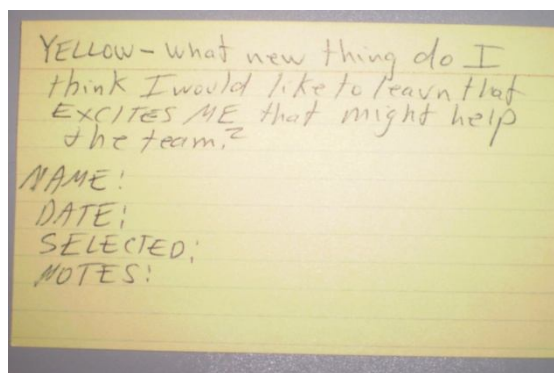 YELLOW - what new thing do I
think I would like to learn that
EXCITES ME that might help
the team?
NAME:
DATE:
SELECTED:
NOTES: